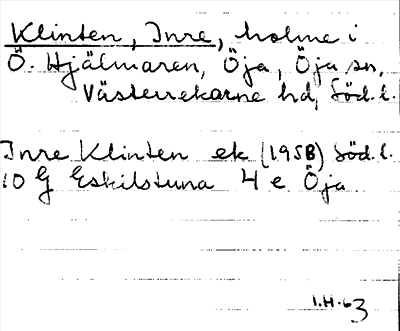 Klinten, Inre, holme i
Ö. Hjälmaren, Öja, Öja sn,
Västerrekarne hd, Söd. l.
Inre Klinten ek (1958) Söd. l.
10 G Eskilstuna 4 e Öja
1.H.63